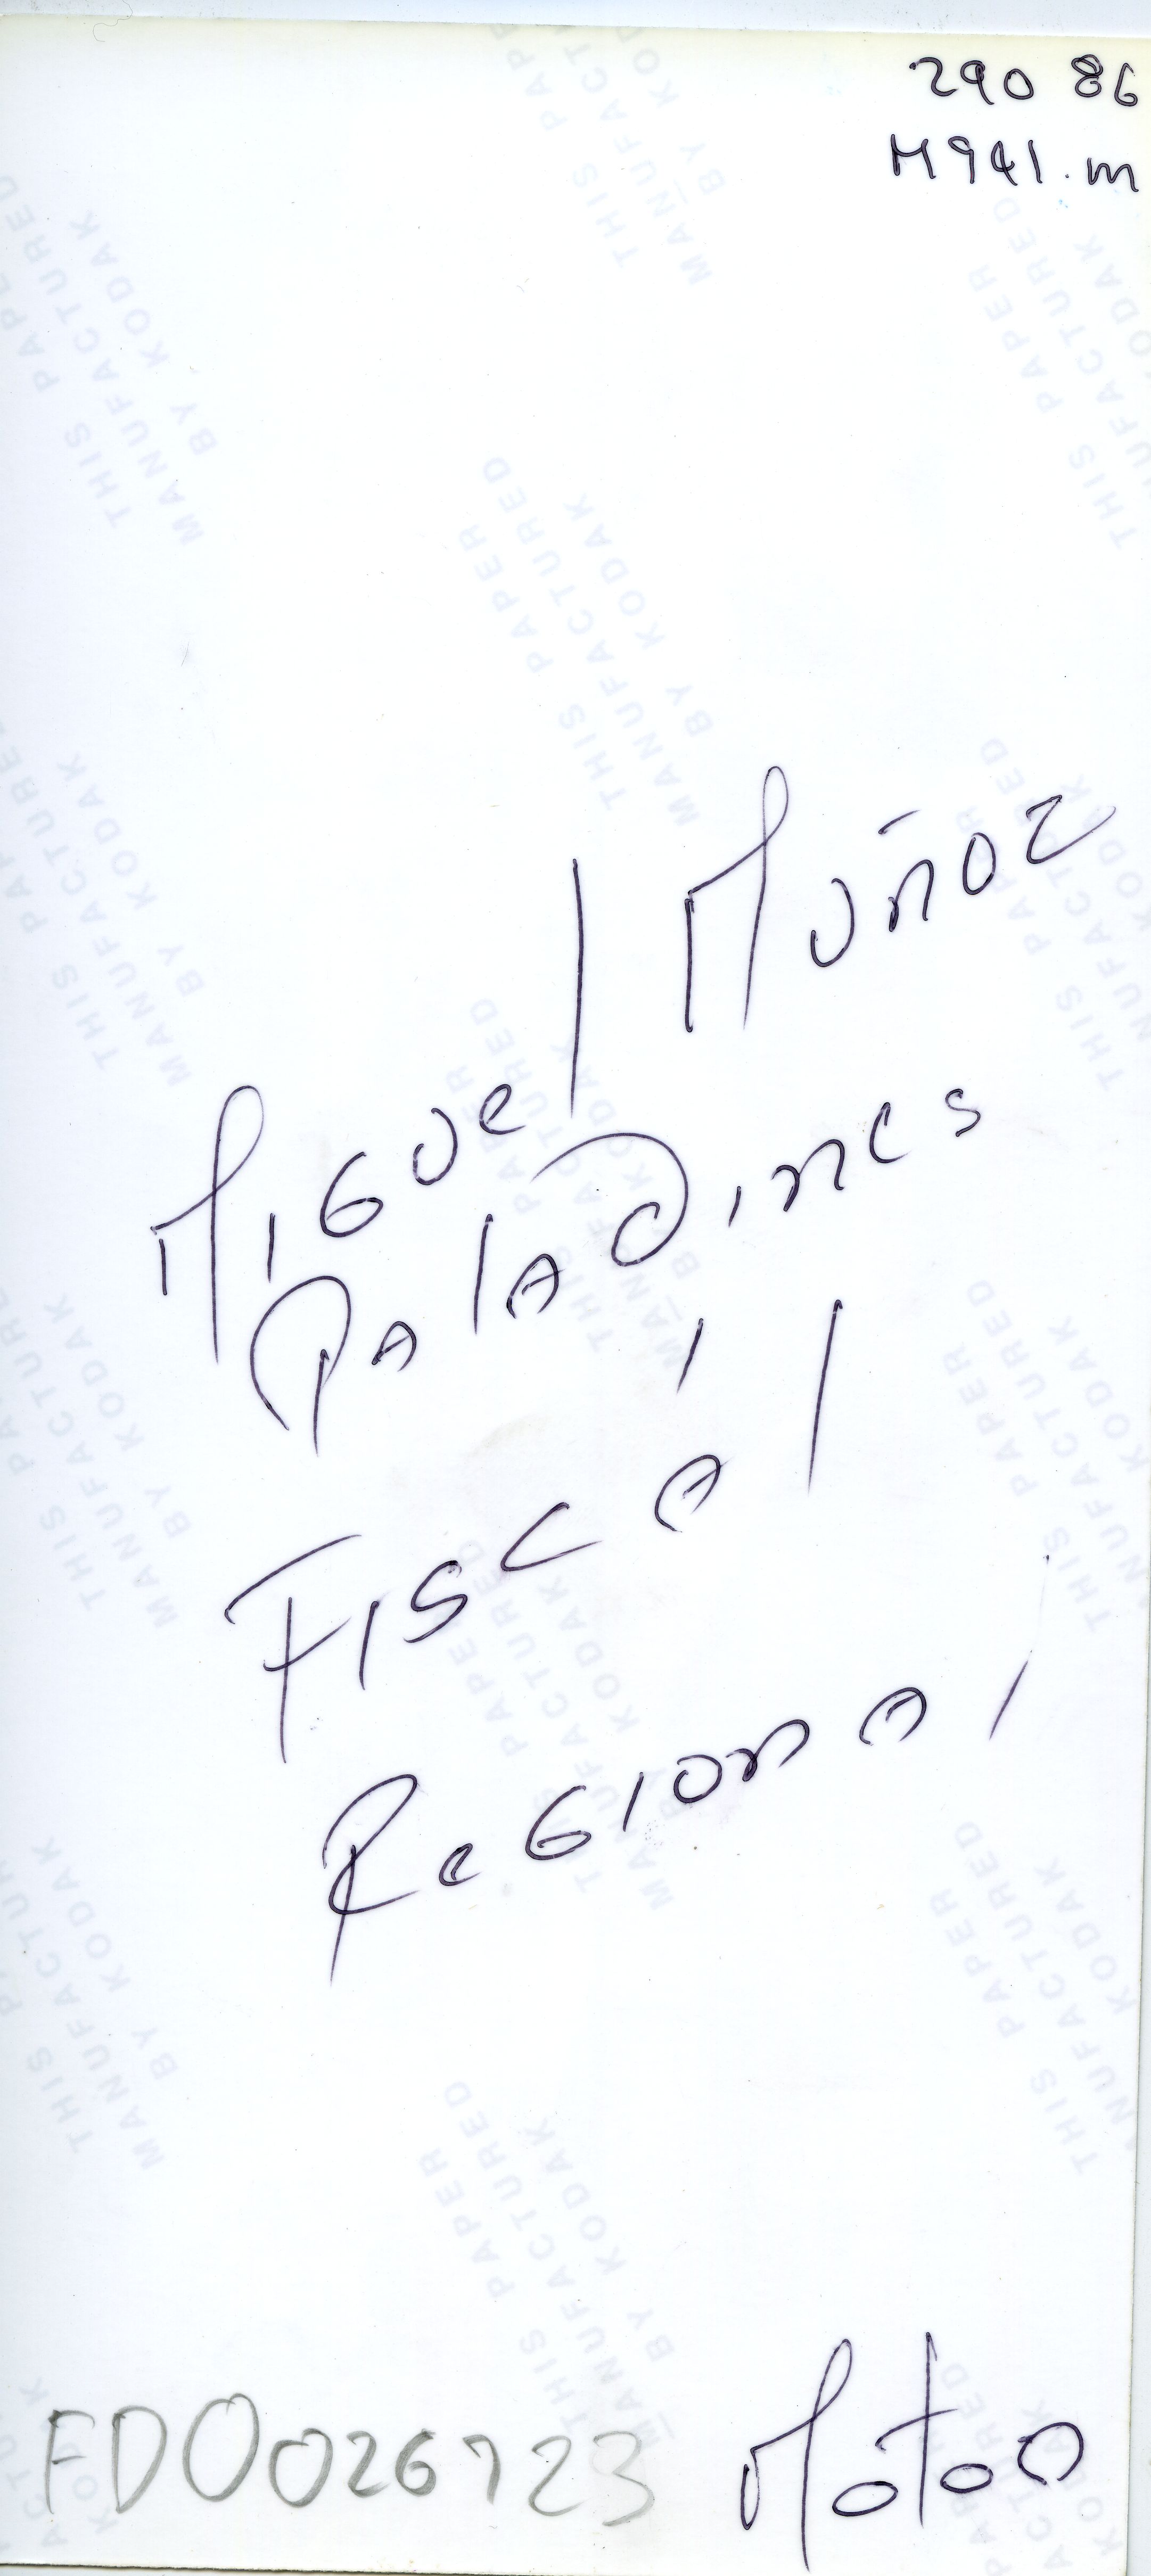 290 86
M941.m
Miguel Muñoz
Paladines
Fiscal
Regional
FD0026723
THIS PAPER
MANUFACTURED
BY KODAK